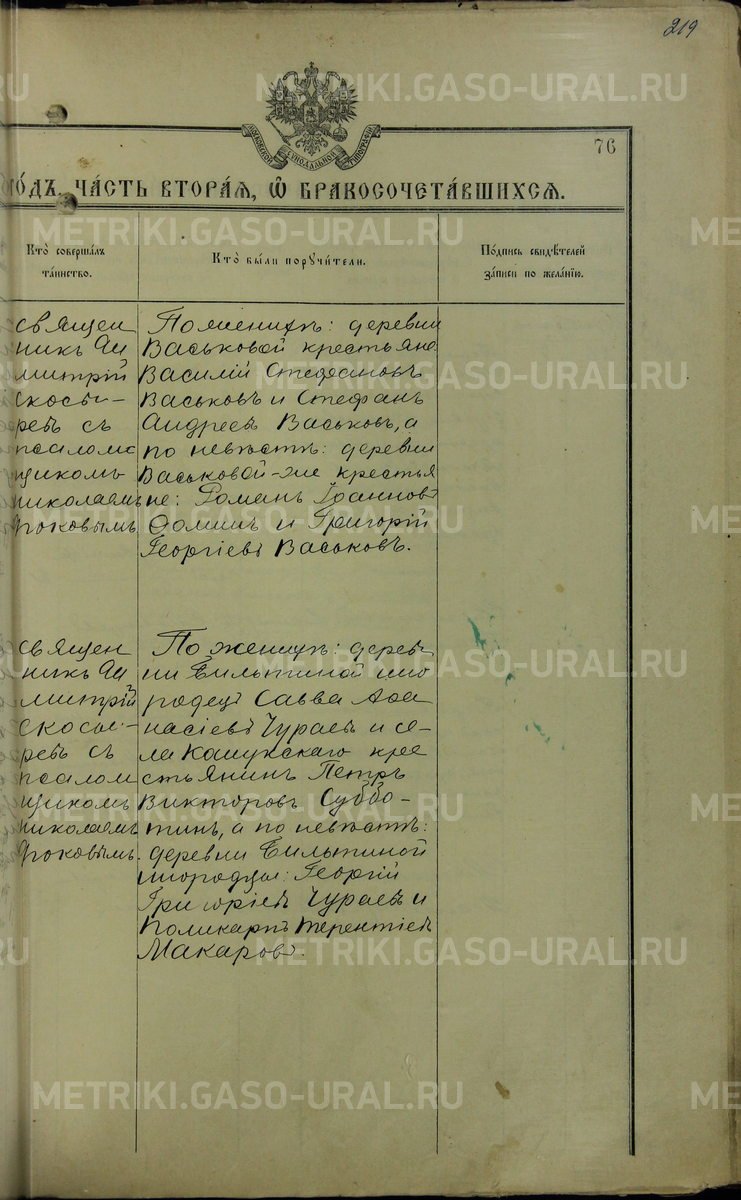 219
МОСКОВСКОЙ СУНОДАЛЬНОЙ ТИПОГРАФІИ
76
го́дъ, ча́сть втора́ѧ, ѡ҆ бракосочета́вшихсѧ.
Кто̀ соверша́лъ
та́инство.
Кто̀ бы́ли поручи́тели.
По́дпись свидѣ́телей
за́писи по жела́нїю.
священ
никъ Ди
митрій
Скосы-
ревъ съ
псалом
щикомъ
Николаемъ
По женихѣ: деревни
Васьковой крестьяне
Василій Стефановъ
Васьковъ и Стефанъ
Андреевъ Васьковъ, а
по невѣстѣ: деревни
Васьковой-же крестья
не: Романъ Іоанновъ
Ѳоминъ и Григорій
Георгіевъ Васьковъ.
священ
никъ Ди
митрій
Скосы-
ревъ съ
псалом
щикомъ
Николаемъ
По женихѣ: дерев
ни Бильтиной ино
родецъ Савва Аѳа
насіевъ Чураевъ и се-
ла крес
стьянинъ Петръ
Викторовъ Суббо-
тинъ, а по невѣстѣ:
деревни Бильтиной
инородцы: Георгій
Григоріевъ Чураевъ и
Поликарпъ Терентіевъ
Макаровъ.
METRIKI.GASO-URAL.RU